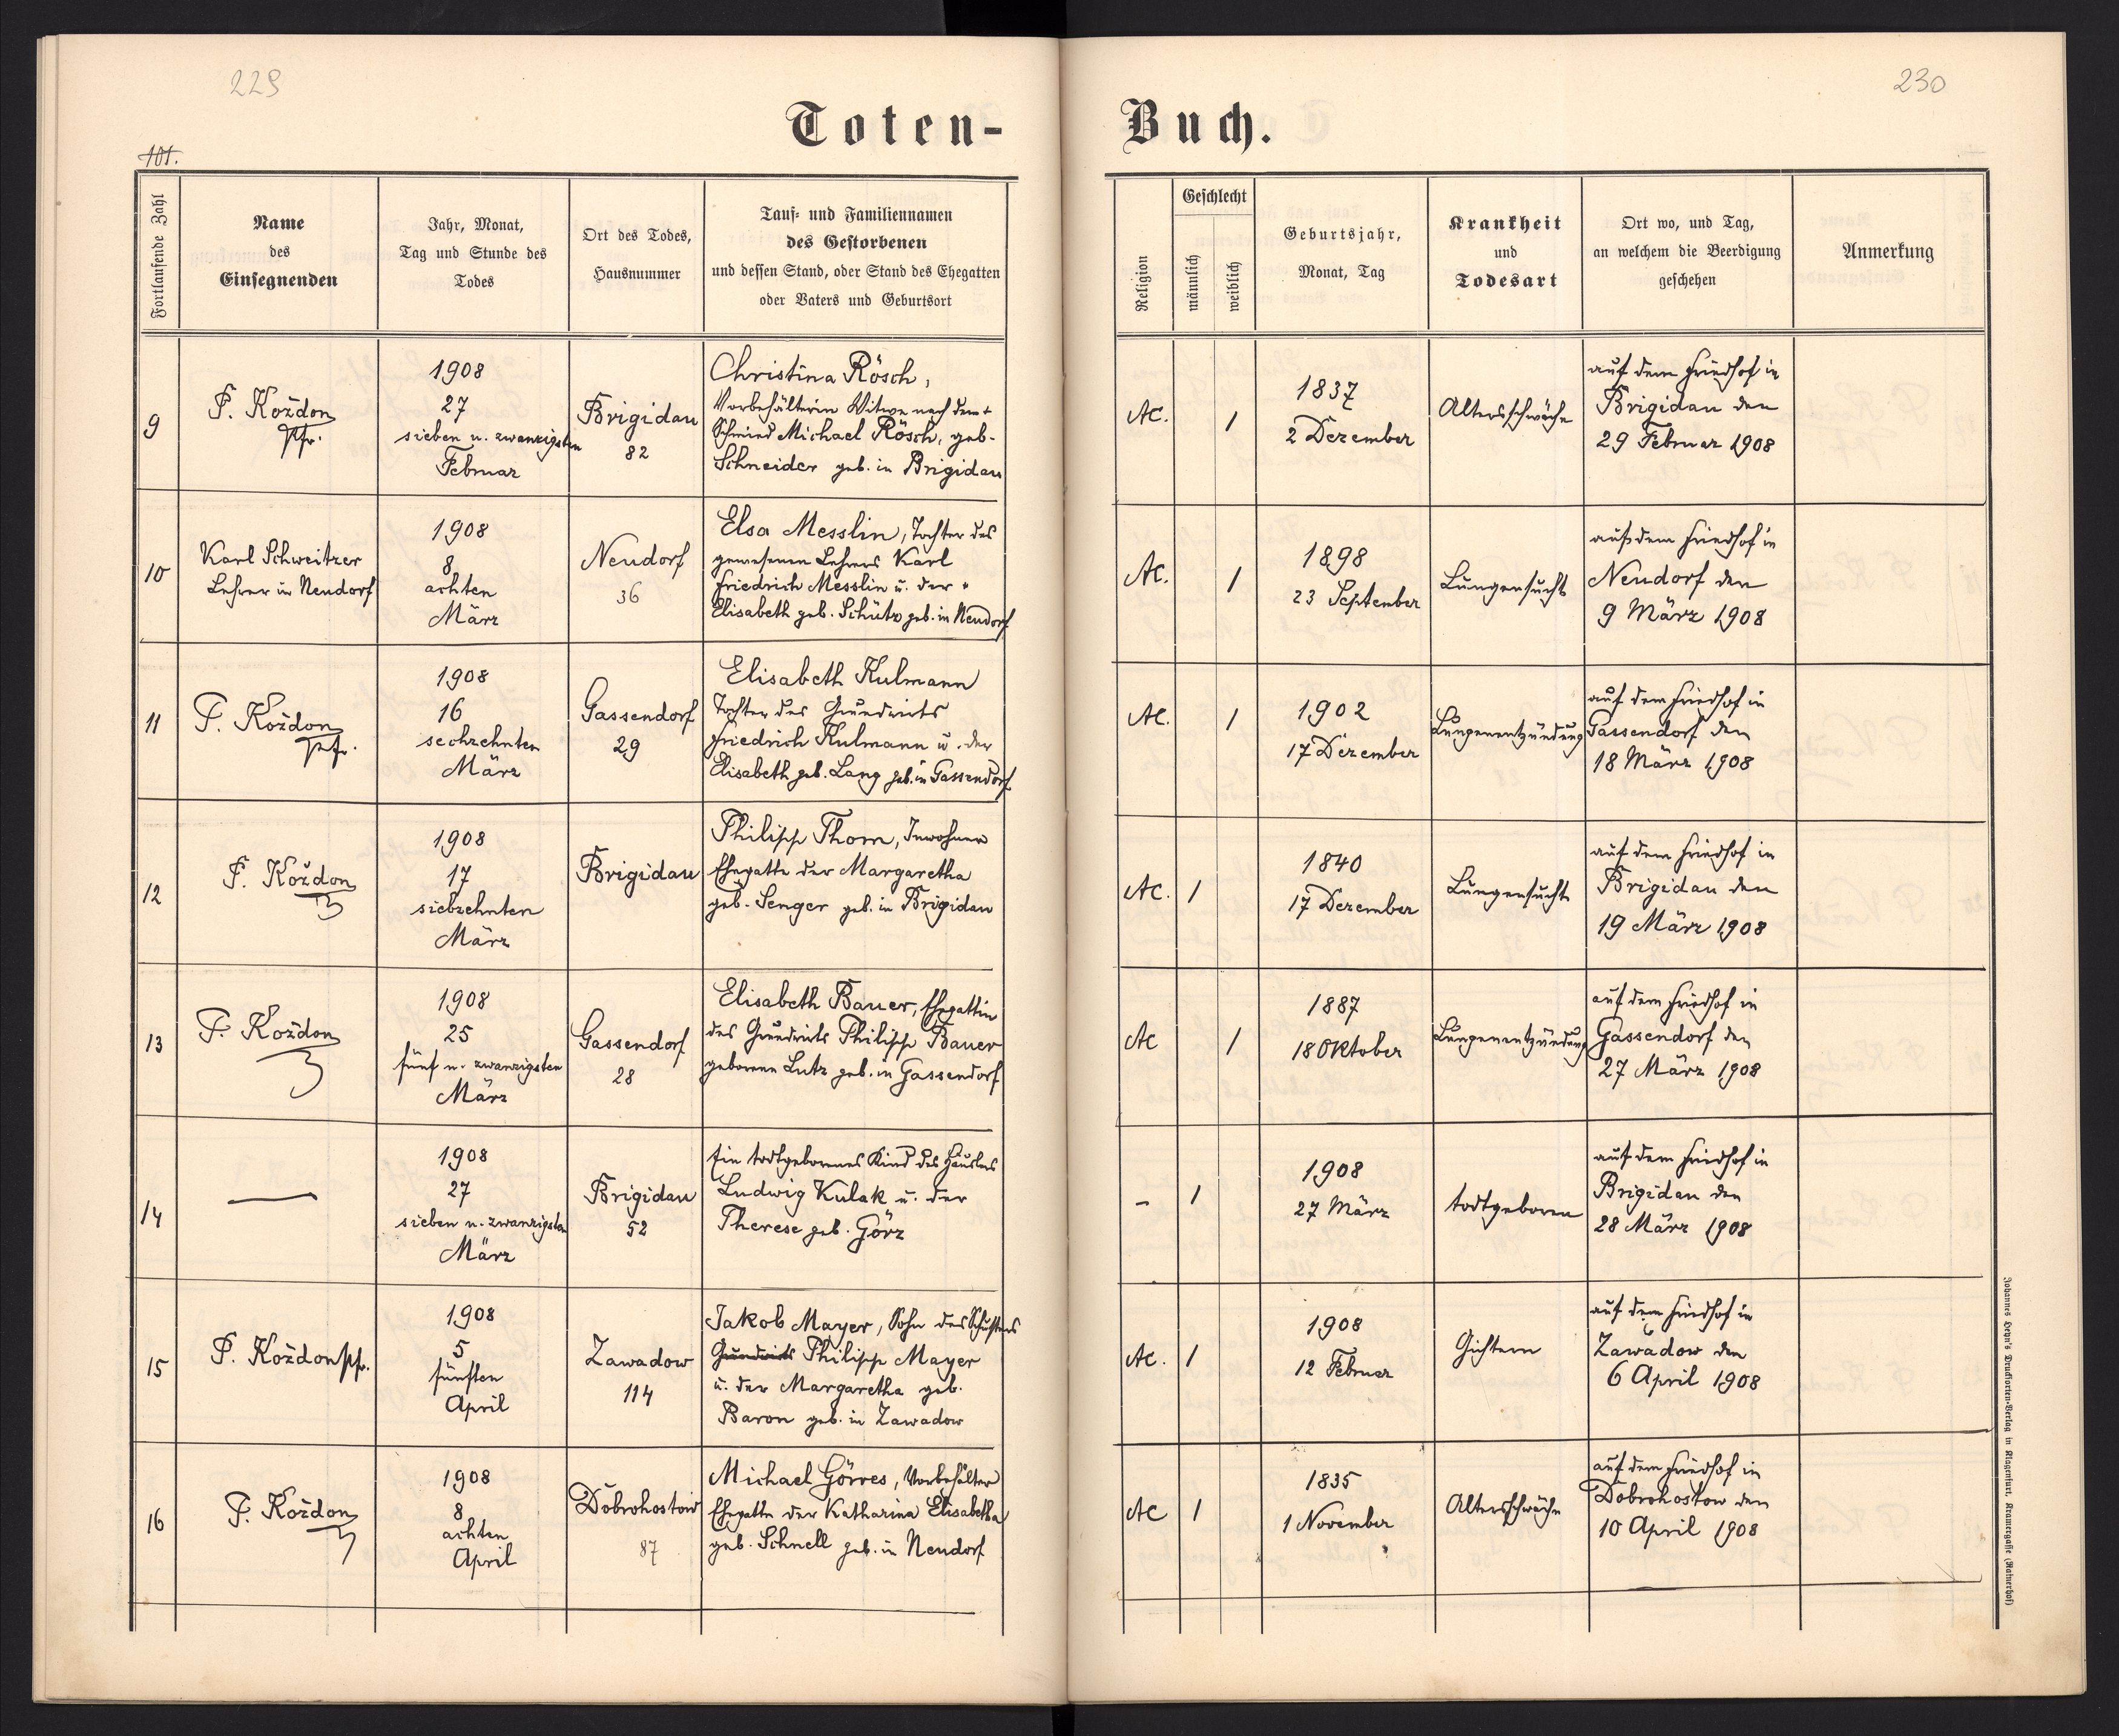 229
Toten-
101.
Fortlaufende Zahl
Name
des
Einsegnenden
Jahr, Monat,
Tag und Stunde des
Todes
Ort des Todes,
Hausnummer
Tauf- und Familiennamen
des Gestorbenen
und dessen Stand, oder Stand des Ehegatten
oder Vaters und Geburtsort
9
F. Koždon
Pfr.
1908
27
sieben u. zwanzigsten
Februar
Brigidau
82
Christina Rösch,
Vorbehälterin Witwe nach dem
Schmied Michael Rösch, geb.
Schneider geb. in Brigidau
10
Karl Schweitzer
Lehrer in Neudorf
1908
8
achten
März
Neudorf
36
Elsa Messlin, Tochter des
gewesenen Lehrers Karl
Friedrich Messlin u. der
Elisabeth geb. Schütz geb. in Neudorf
11
F. Koždon
Pfr.
1908
16
sechzehnten
März
Gassendorf
29
Elisabeth Kulmann
Tochter des Grundwirts
Friedrich Kulmann u. der
Elisabeth geb. Lang geb. in Gassendorf
12
F. Koždon
1908
17
siebzehnten
März
Brigidau
Philipp Thom, Inwohner
Ehegatte der Margaretha
geb. Senger geb. in Brigidau
13
F. Koždon
1908
25
fünf u. zwanzigsten
März
Gassendorf
28
Elisabeth Bauer, Ehegattin
des Grundwirts Philipp Bauer
geborene Lutz geb. in Gassendorf
14
—
1908
27
sieben u. zwanzigsten
März
Brigidau
52
Ein todtgeborenes Kind des Häuslers
Ludwig Kulak u. der
Therese geb. Görz
15
F. Koždon Pfr.
1908
5
fünften
April
Zawadow
114
Jakob Mayer, Sohn des Schusters
Grundwirts Philipp Mayer
u. der Margaretha geb.
Baron geb. in Zawadow
16
F. Koždon
1908
8
achten
April
Dobrohostow
87
Michael Görres, Vorbehälter
Ehegatte der Katharina Elisabetha
geb. Schnell geb. in Neudorf
230
Buch.
Religion
Geschlecht
männlich
weiblich
Geburtsjahr,
Monat, Tag
Krankheit
und
Todesart
Ort wo, und Tag,
an welchem die Beerdigung
geschehen
Anmerkung
AC.
1
1837
2 Dezember
Altersschwäche
auf dem Friedhof in
Brigidau den
29 Februar 1908
AC.
1
1898
23 September
Lungensucht
auf dem Friedhof in
Neudorf den
9 März 1908
AC.
1
1902
17 Dezember
Lungenentzündung
auf dem Friedhof in
Gassendorf den
18 März 1908
AC.
1
1840
17 Dezember
Lungensucht
auf dem Friedhof in
Brigidau den
19 März 1908
AC
1
1887
18 Oktober
Lungenentzündung
auf dem Friedhof in
Gassendorf den
27 März 1908
-
1
1908
27 März
todtgeboren
auf dem Friedhof in
Brigidau den
28 März 1908
AC.
1
1908
12 Februar
Gichtern
auf dem Friedhof in
Zawadow den
6 April 1908
AC
1
1835
1 November
Altersschwäche
auf dem Friedhof in
Dobrohostow den
10 April 1908
Johannes Heyn's Drucksorten-Verlag in Klagenfurt, Kramergasse (Rainerhof)